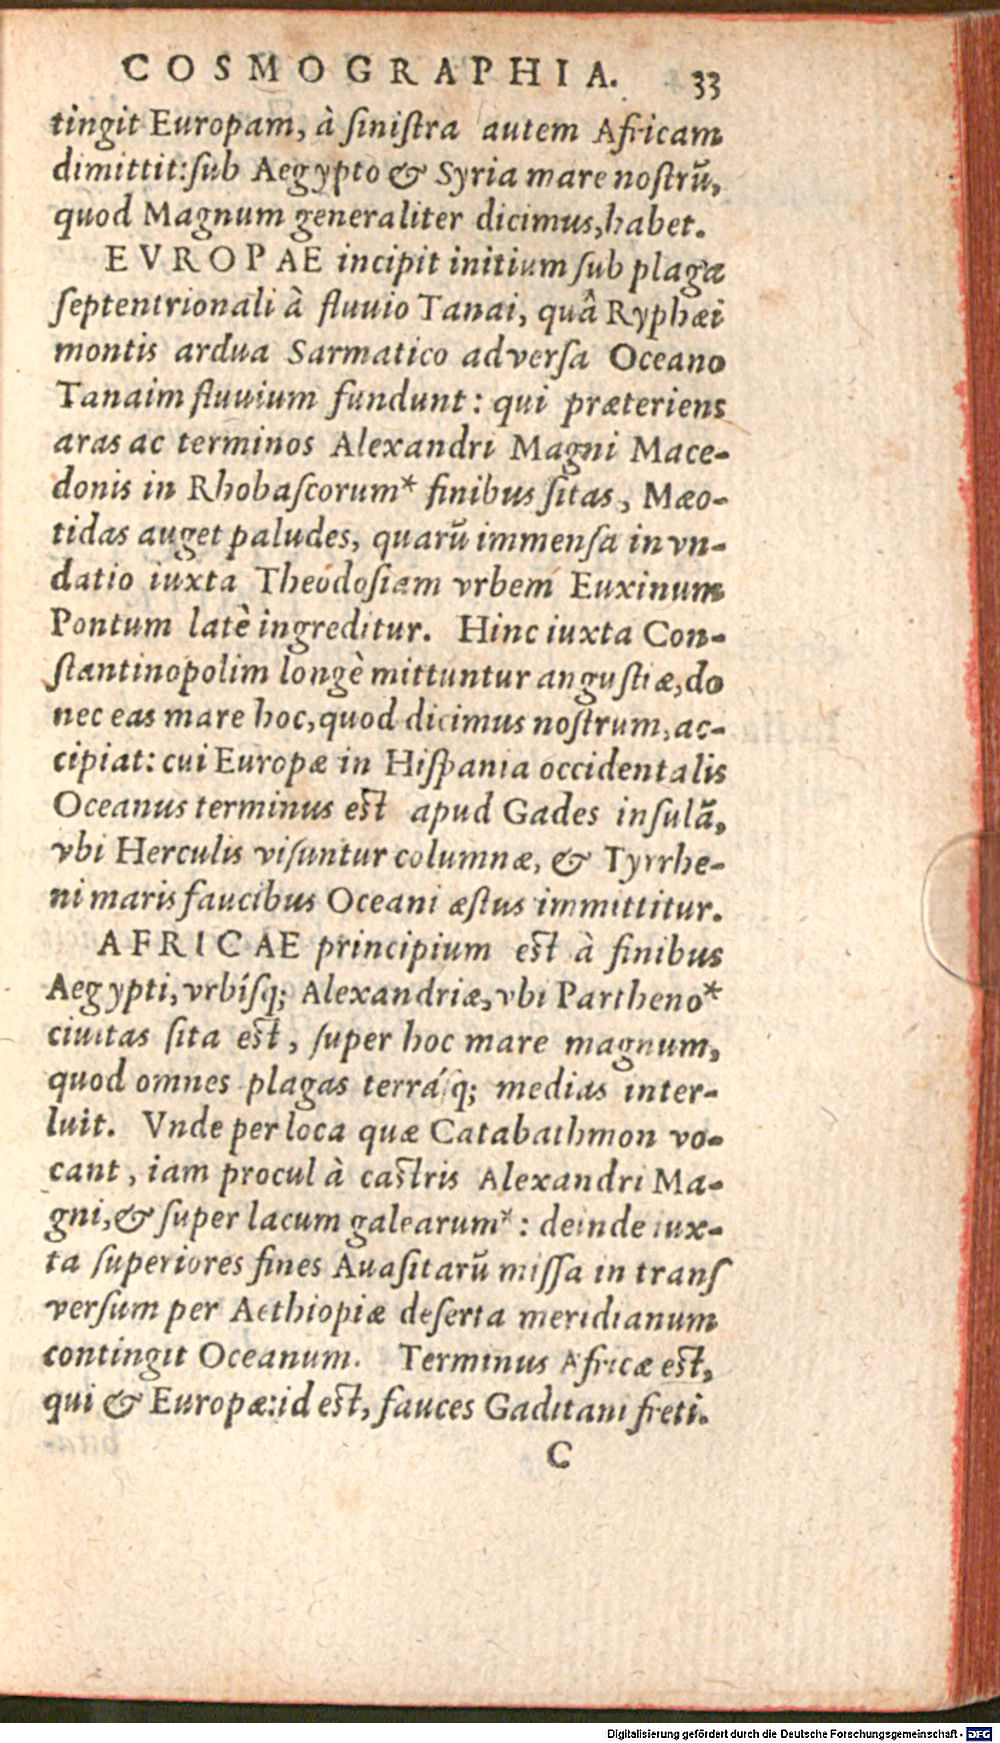 COSMOGRAPHIA. 33
tingit Europam, à ſiniſtra autem Africam
dimittit:ſub Aegypto & Syria mare noſtrū,
quod Magnum generaliter dicimus,habet.
EVROPAE incipit initium ſub plaga
ſeptentrionali à fluuio Tanai, quâ Ryphæi
montis ardua Sarmatico adverſa Oceano
Tanaim fluuium fundunt: qui præteriens
aras ac terminos Alexandri Magni Mace-
donis in Rhobaſcorum* finibus ſitas, Mæo-
tidas auget paludes, quarū immenſa invn-
datio iuxta Theodoſiam vrbem Euxinum
Pontum latè ingreditur. Hinc iuxta Con-
ſtantinopolim longè mittuntur anguſtiæ,do
nec eas mare hoc,quod dicimus noſtrum,ac-
cipiat: cui Europæ in Hiſpania occidentalis
Oceanus terminus eſt apud Gades inſulā,
vbi Herculis viſuntur columnæ, & Tyrrhe-
ni maris faucibus Oceani æſtus immittitur.
AFRICAE principium eſt à finibus
Aegypti,vrbíſq; Alexandriæ,vbi Partheno*
ciuitas ſita eſt, ſuper hoc mare magnum,
quod omnes plagas terráſq; medias inter-
luit. Vnde per loca quæ Catabathmon vo-
cant, iam procul à caſtris Alexandri Ma-
gni,& ſuper lacum galearum*: deinde iux-
ta ſuperiores fines Auaſitarū miſſa in tranſ
verſum per Aethiopiæ deſerta meridianum
contingit Oceanum. Terminus Africæ eſt,
qui & Europæ:id eſt, fauces Gaditani freti.
C
Digitalisierung gefördert durch die Deutsche Forschungsgemeinschaft - DFG